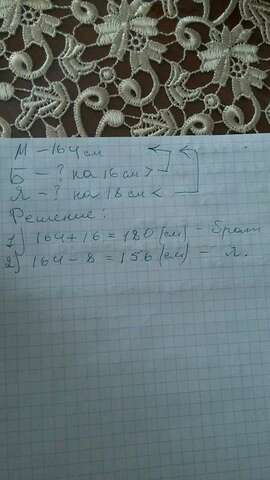 М – 164 см
Б – ? на 16 см >
Я – ? на 18 см <
Решение:
1) 164 + 16 = 180 (см) – брат
2) 164 – 8 = 156 (см) – Я.